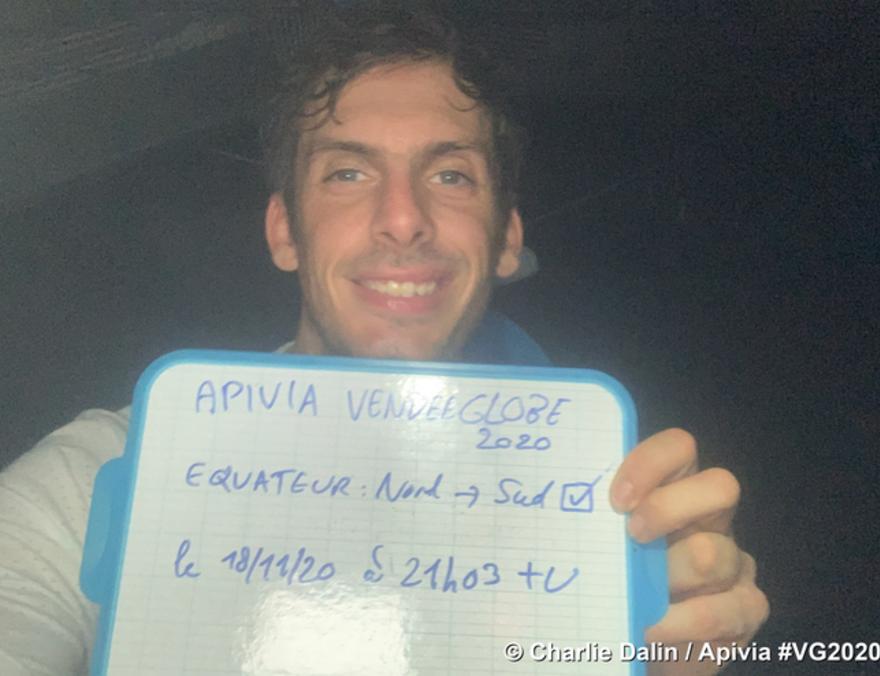 APIVIA VENDEE GLOBE
2020
EQUATEUR : Nord → Sud ☑
le 18/11/20 à 21h03 TU
© Charlie Dalin / Apivia #VG2020